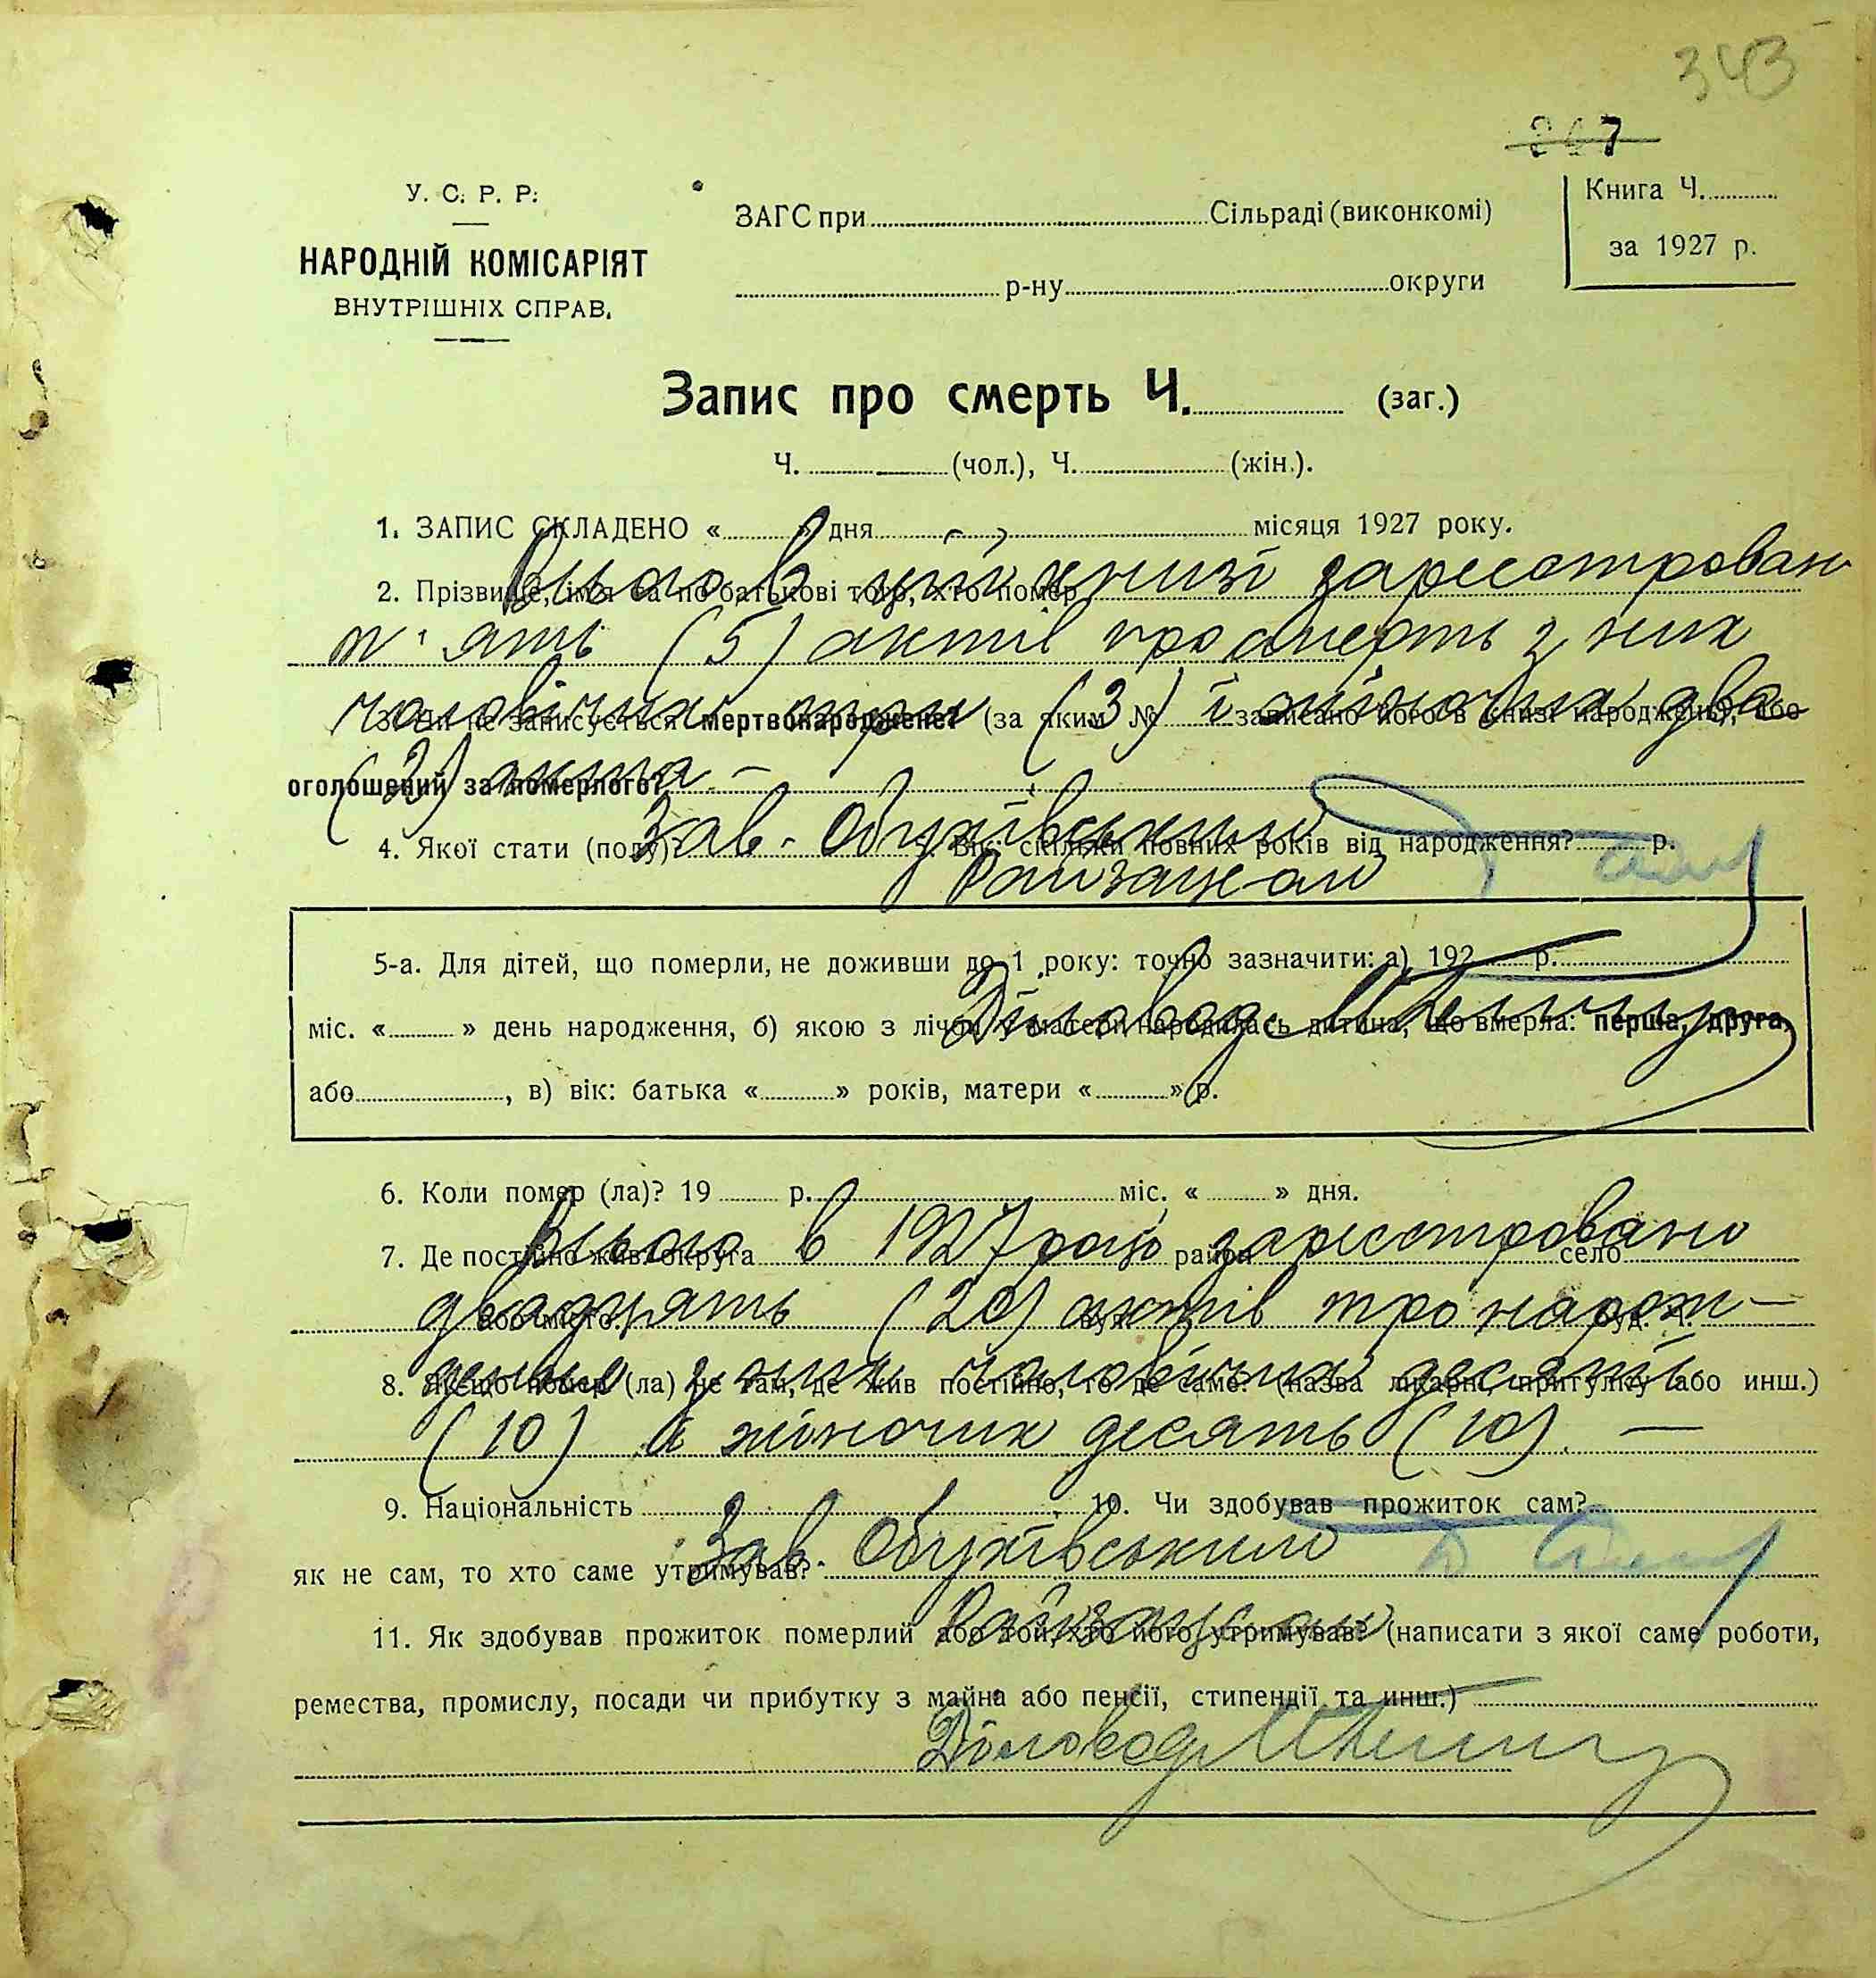 343
267
У. С. Р. Р.
НАРОДНІЙ КОМІСАРІЯТ
ВНУТРІШНІХ СПРАВ.
ЗАГС при Сільраді (виконкомі)
р-ну округи
Книга Ч.
за 1927 р.
Запис про смерть Ч. (заг.)
Ч. (чол.), Ч. (жін.).
1. ЗАПИС СКЛАДЕНО « » дня місяця 1927 року.
Всього в цій книзі зареєстрован
2. Прізвище, ім'я та по батькові того, хто помер
п'ять (5) актів про смерть з них
чоловічих три (3) і жіночих два
3. Чи не записується мертвонароджене? (за яким № записано його в книзі народжень), або
(2) акта —
оголошений за померлого?
Зав. Обухівським
4. Якої стати (полу) Вік: скільки повних років від народження? р.
Райзагсом
5-а. Для дітей, що померли, не доживши до 1 року: точно зазначити: а) 192 р.
Діловод
міс. « » день народження, б) якою з лічби у матери народилась дитина, що вмерла: перша, друга,
або , в) вік: батька « » років, матери « » р.
6. Коли помер (ла)? 19 р. міс. « » дня.
Всього в 1927 році зареєстровано
7. Де постійно жив: округа район село
двадцять (20) актів про народ-
або місто вул. буд. Ч.
ження з них чоловічих десять
8. Якщо помер (ла) не там, де жив постійно, то де саме? (назва лікарні, притулку або инш.)
(10) й жіночих десять (10). —
9. Національність 10. Чи здобував прожиток сам?
Зав. Обухівським
як не сам, то хто саме утримував?
Райзагсом
11. Як здобував прожиток померлий або той, хто його утримував? (написати з якої саме роботи,
ремества, промислу, посади чи прибутку з майна або пенсії, стипендії та инш.)
Діловод